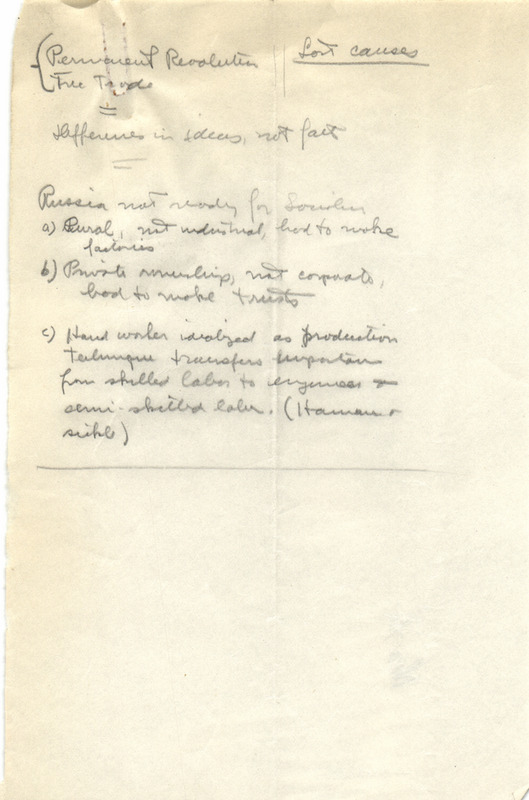 Permanent Revolution
Lost causes
Free Trade
Differences in ideas, not fact
Russia not ready for Socialism
a) Rural, not industrial, had to make
factories
b) Private ownership, not corporate,
had to make trusts
c) Hand worker idealized as production
technique transfers importance
from skilled labor to engineer &
semi-skilled labor. (Hammer &
sickle)